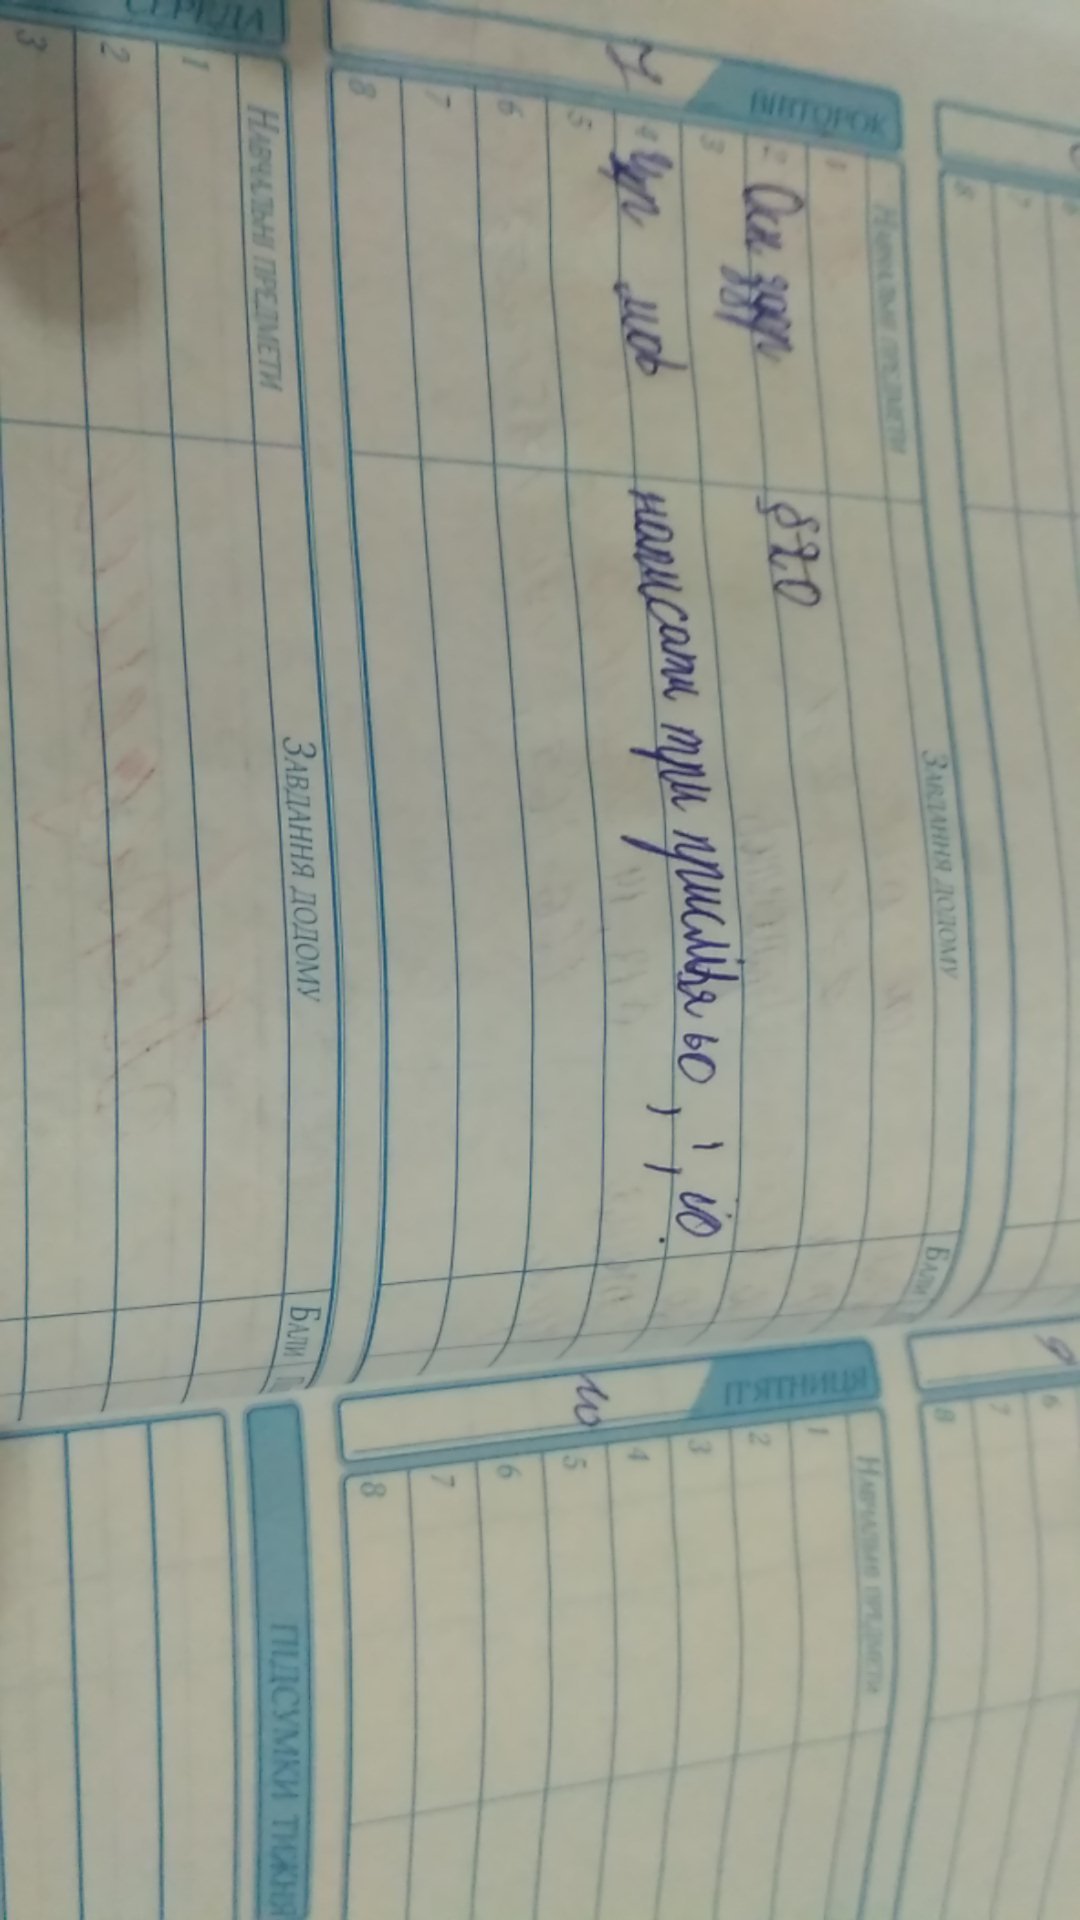 8
6
7
8
ВІВТОРОК
7
НАВЧАЛЬНІ ПРЕДМЕТИ
ЗАВДАННЯ ДОДОМУ
БАЛИ
1
2 Осн здор §20
3
4 Укр мов написати три прислівя ьо, ', йо.
5
6
7
8
СЕРЕДА
НАВЧАЛЬНІ ПРЕДМЕТИ
ЗАВДАННЯ ДОДОМУ
БАЛИ
1
2
3
6
7
8
П'ЯТНИЦЯ
10
НАВЧАЛЬНІ ПРЕДМЕТИ
1
2
3
4
5
6
7
8
ПІДСУМКИ ТИЖНЯ